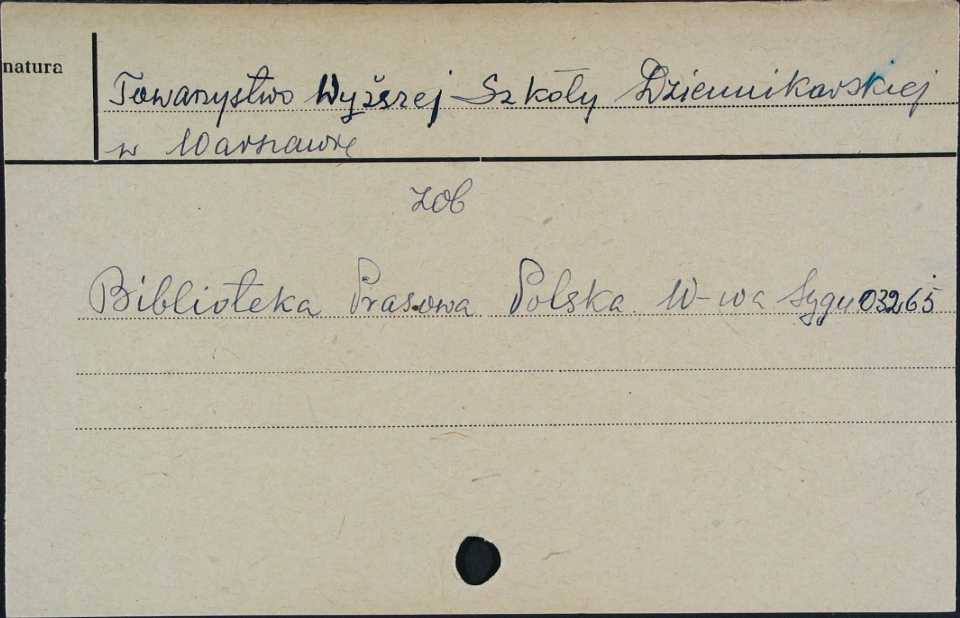 natura
Towarzystwo Wyższej Szkoły Dziennikarskiej
w Warszawie
zob
Biblioteka Prasowa Polska. W-wa Sygn. 03265